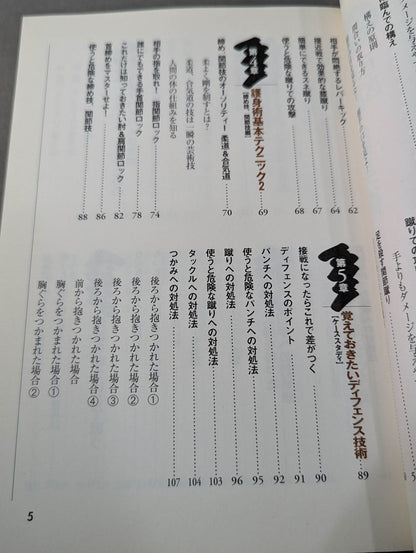 臨んでの構え
構えの原則
相手が悶絶するレバーキック 62
接近戦で効果的な膝蹴り 64
簡単にできるスネ蹴り 67
使うと危険な蹴りでの攻撃 68
護身術基本テクニック2 69
【締め技、関節技編】
締め、関節技のオーソリティー 柔道&合気道 70
柔よく剛を制すとは?
柔道、合気道の技は一瞬の芸術技
人間の体の仕組みを知る
相手の指を取れ! 指関節ロック 74
誰にでもできる手首関節ロック 78
これだけは知っておきたい肘&肩関節ロック 82
首締めをマスターせよ! 86
使うと危険な締め技、関節技 88
第5章
覚えておきたいディフェンス技術 89
【ケーススタディ】
接戦になったらこれで差がつく 90
ディフェンスのポイント 91
パンチへの対処法 92
使うと危険なパンチへの対処法 95
蹴りへの対処法 96
使うと危険な蹴りへの対処法 103
タックルへの対処法 104
つかみへの対処法 107
後ろから抱きつかれた場合①
後ろから抱きつかれた場合②
後ろから抱きつかれた場合③
後ろから抱きつかれた場合④
前から抱きつかれた場合
胸ぐらをつかまれた場合①
胸ぐらをつかまれた場合②
5